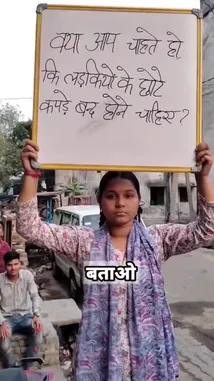 क्या आप चाहते हो
कि लड़कियो के छोटे
कपड़े बद होने चाहिए?
बताओ